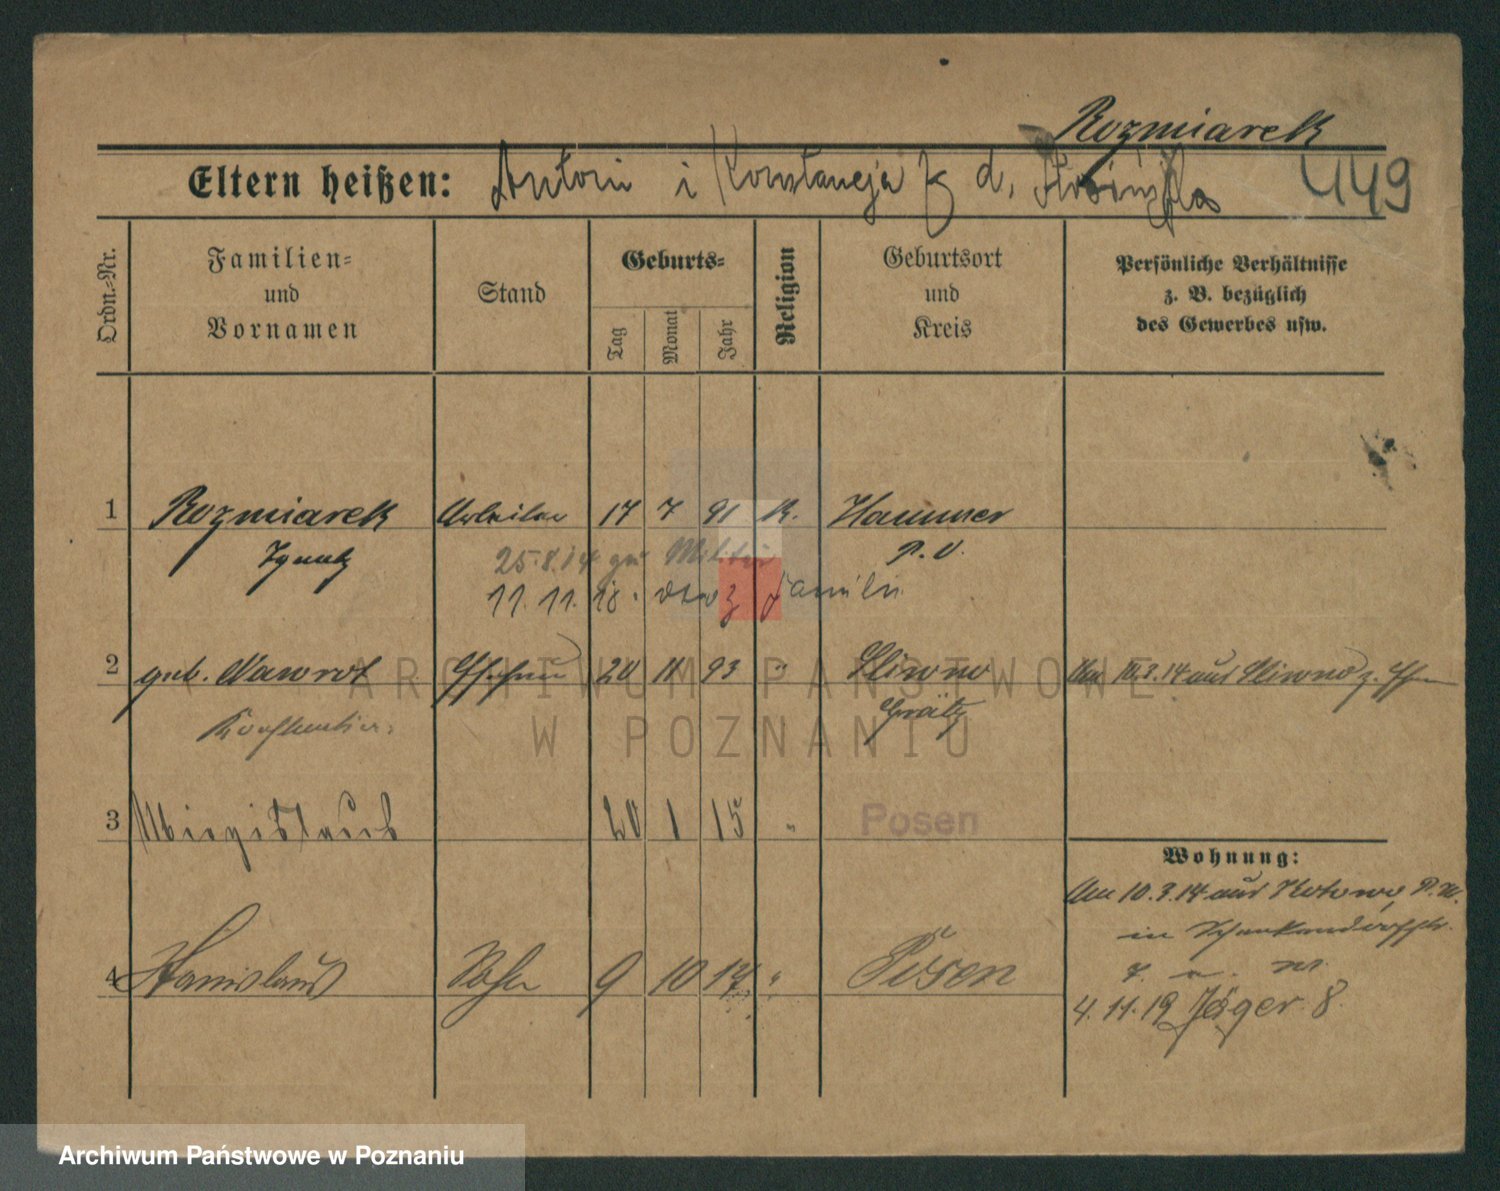 Rozmiarek
Eltern heißen: Antoni i Konstancja z d.
449
Ordn.-Nr.
Familien-
und
Vornamen
Stand
Geburts-
Tag
Monat
Jahr
Religion
Geburtsort
und
Kreis
Persönliche Verhältnisse
z. B. bezüglich
des Gewerbes usw.
1 Rozmiarek Arbeiter 17 7 91 K. Hammer
Ignatz P. O.
25.8.14 zum Militär
11.11.18. familii
2 geb. Nawrot Ehefrau 20 11 93 " Sliwno Am 10.3.14 aus Sliwno z. Ehe
Konstantia Grätz
3 20 1 15 " Posen
Wohnung:
Am 10.3.14 aus Kotowo, P. W.
in Schenkendorffstr.
4 Stanislaus Sohn 9 10 17 " Posen
4.11.19 Jäger 8.
ARCHIWUM PAŃSTWOWE
W POZNANIU
Archiwum Państwowe w Poznaniu